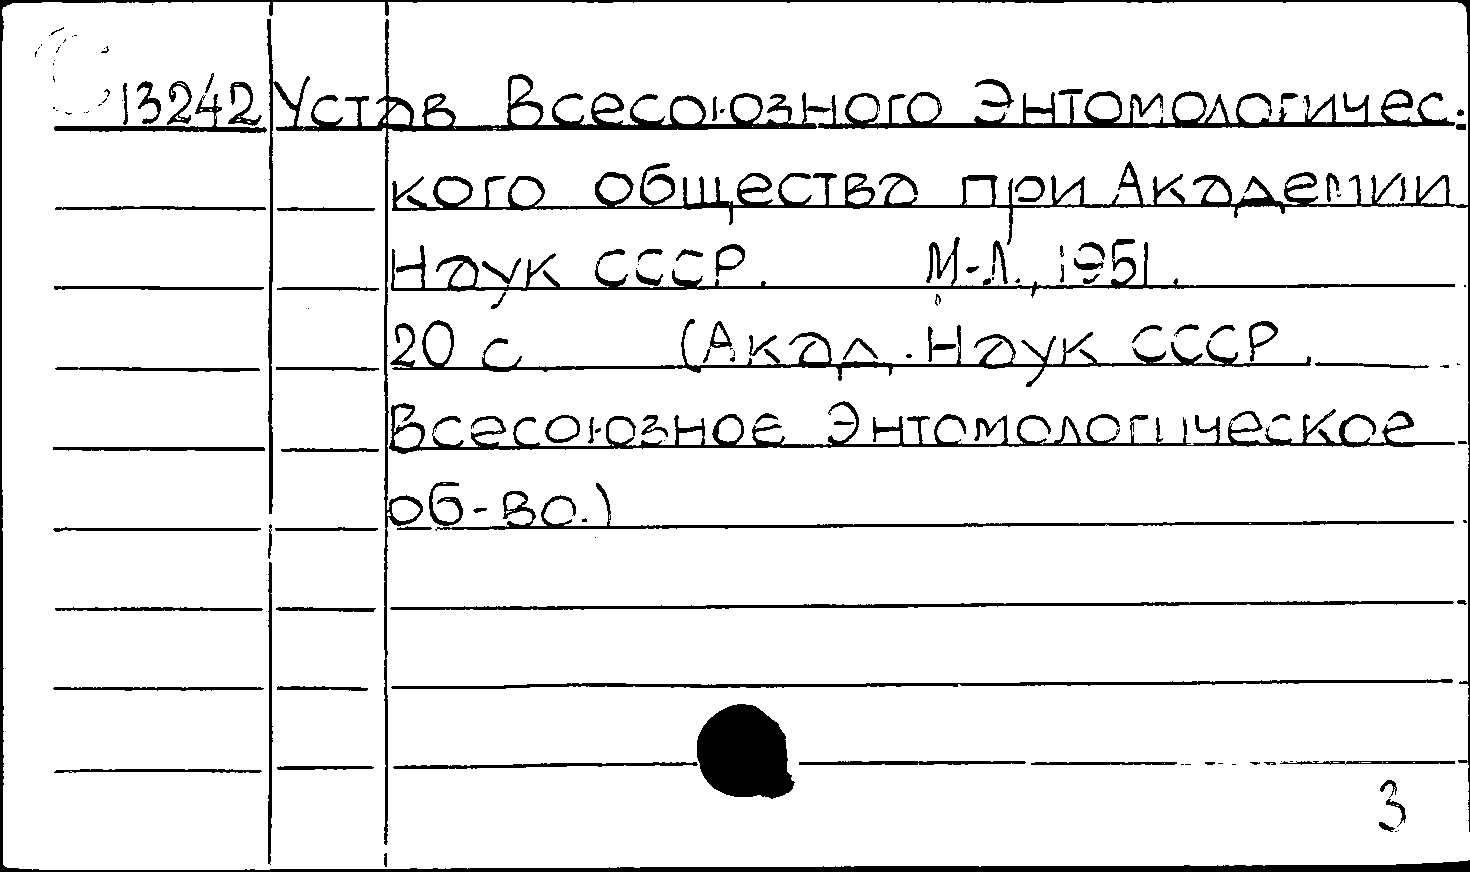 С 13242 Устав Всесоюзного Энтомологичес-
кого общества при Академии
Наук СССР. М-Л., 1951.
20 с (Акад. Наук СССР.
Всесоюзное Энтомологическое
об-во.)
3